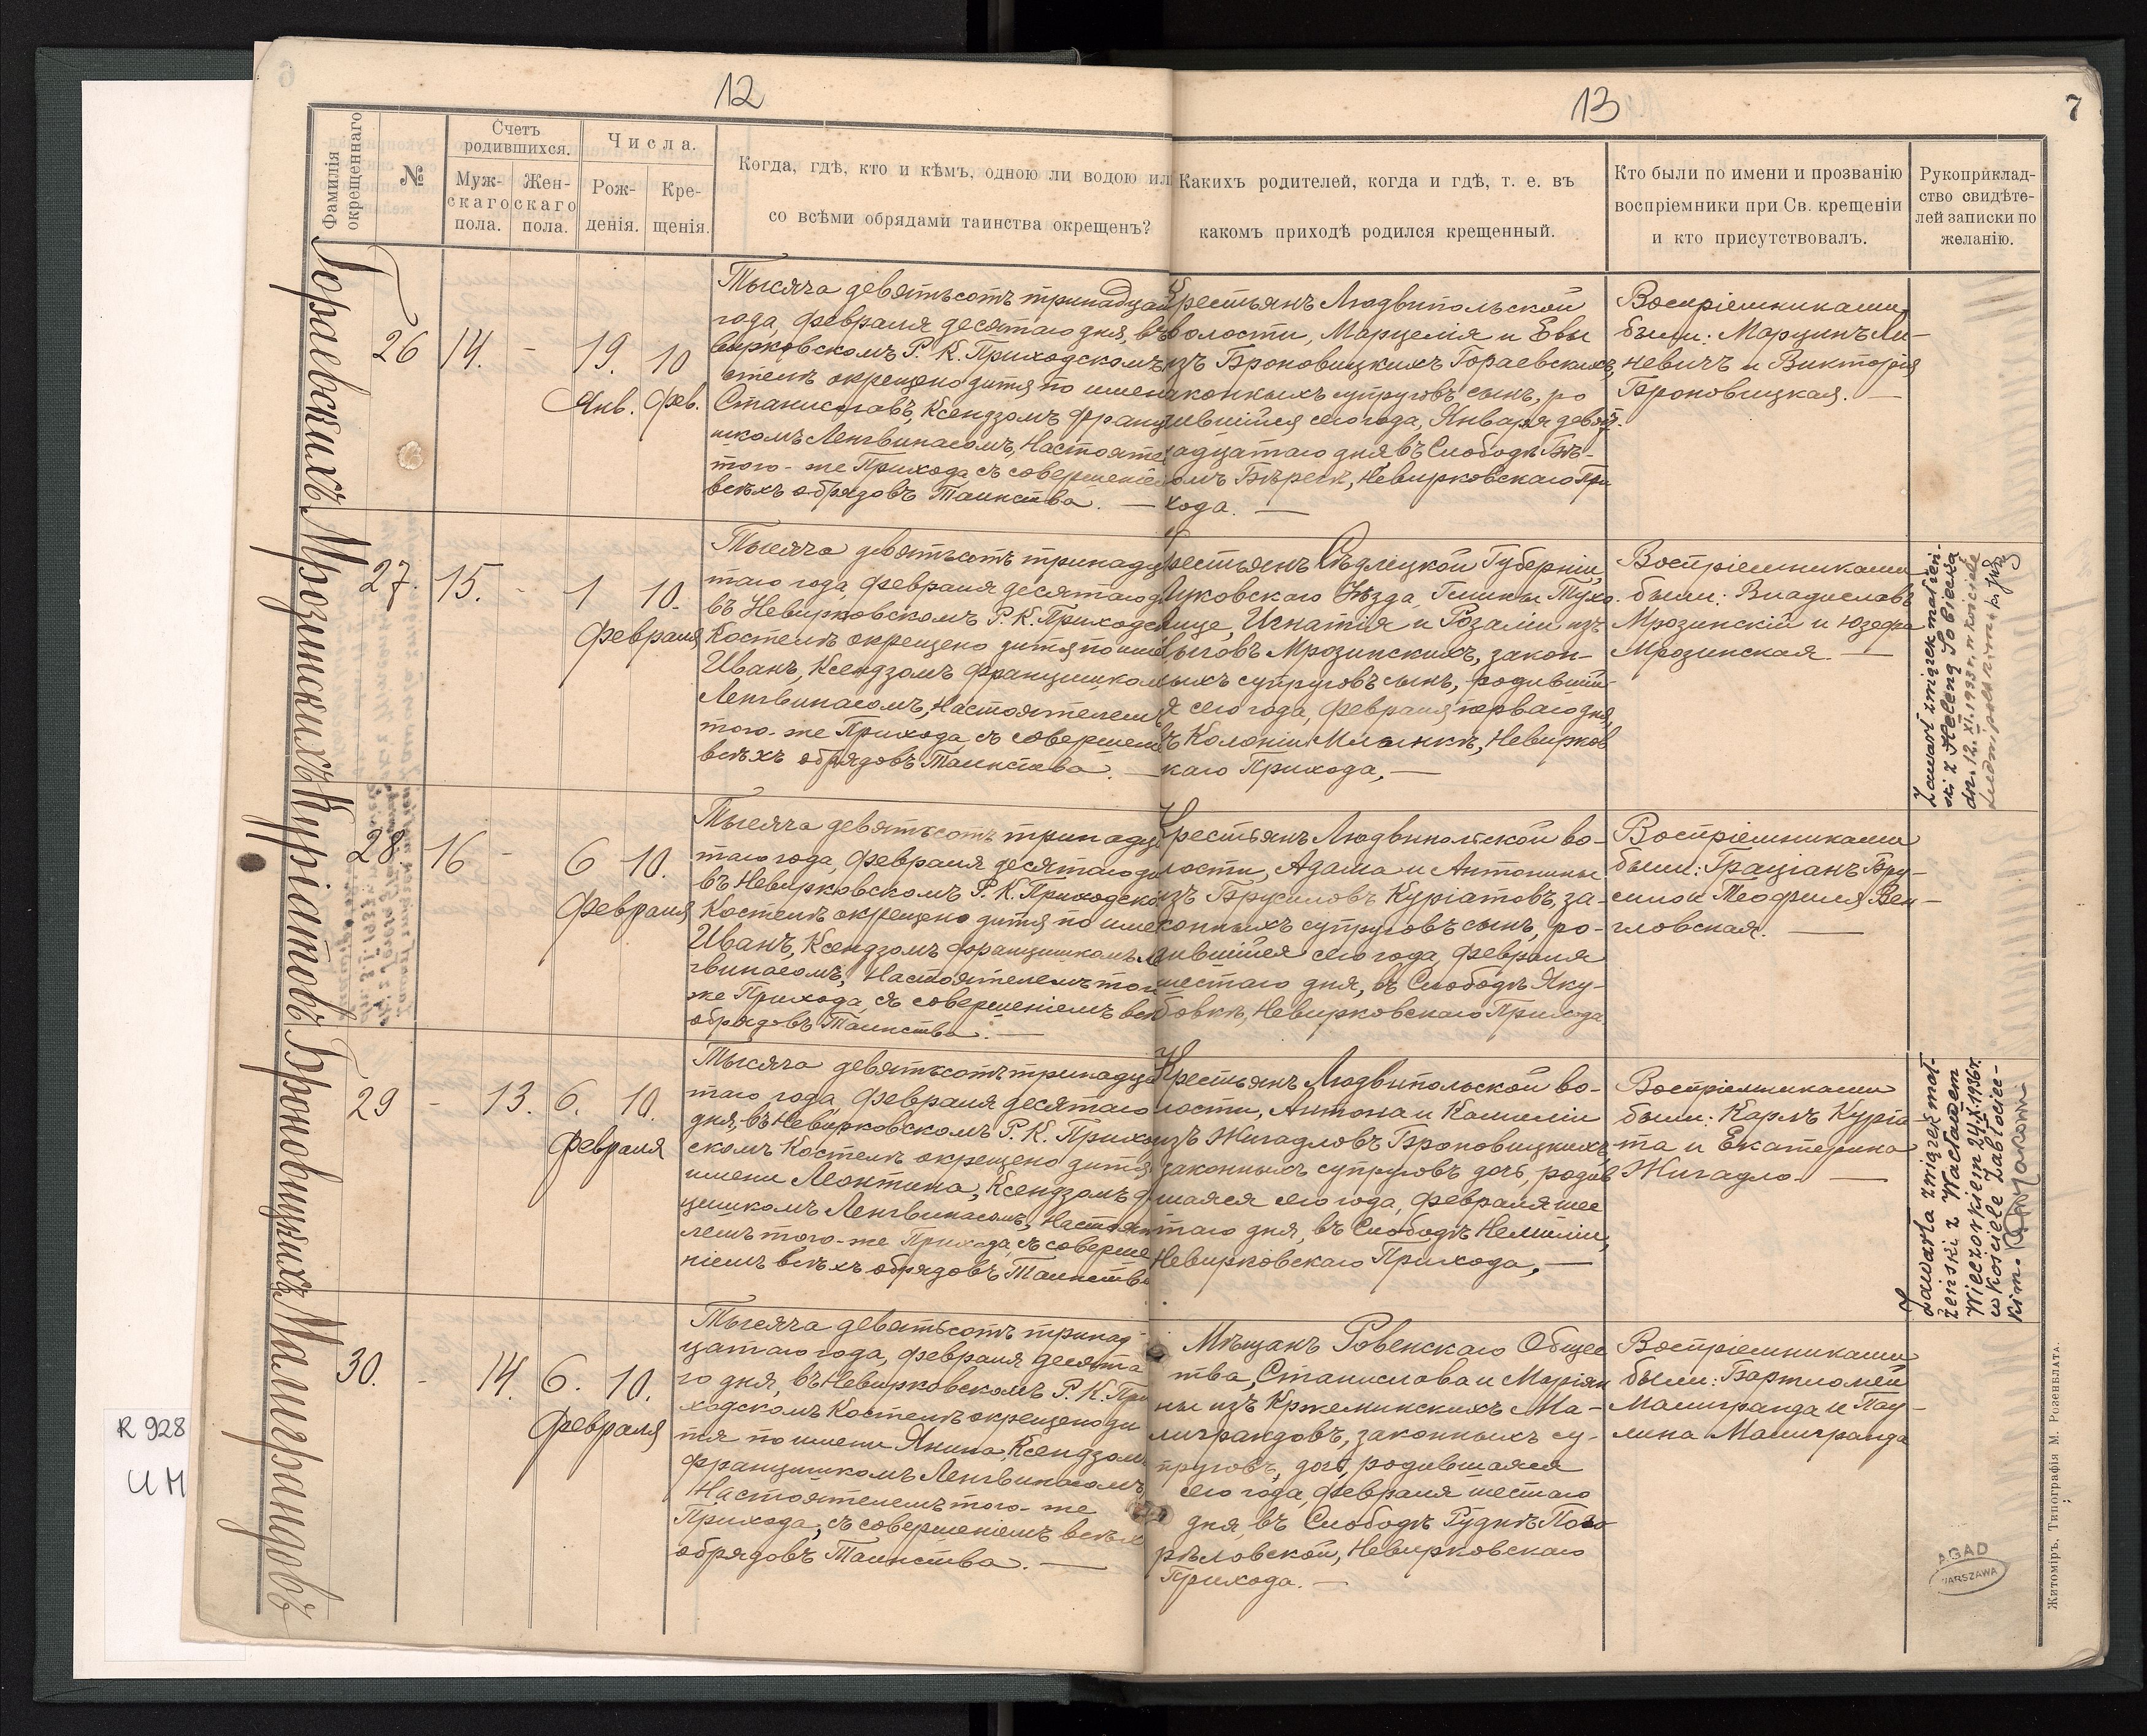 12
Фамилія окрещеннаго
№
Счетъ родившихся.
Муж-
скаго
пола.
Жен-
скаго
пола.
Числа.
Рож-
денія.
Кре-
щенія.
Когда, гдѣ, кто и кѣмъ, одною ли водою или
со всѣми обрядами таинства окрещенъ?
13
7
Какихъ родителей, когда и гдѣ, т. е. въ
какомъ приходѣ родился крещенный.
Кто были по имени и прозванію
воспріемники при Св. крещеніи
и кто присутствовалъ.
Рукоприклад-
ство свидѣте-
лей записки по
желанію.
Гораевскихъ
26
14.
-
19.
Янв.
10
Фев.
Тысяча девятьсотъ тринадцат
года, Февраля десятаго дня, въ
вирковскомъ Р. К. Приходскомъ
стелѣ окрещено дитя по имен
Станиславъ, Ксендзомъ Франц
шкомъ Ленгвинасомъ, Настояте
того-же Прихода, съ совершеніе
всѣхъ обрядовъ Таинства. —
Крестьянъ Людвипольской
волости, Марцелія и Евы
изъ Броновицкихъ Гораевскихъ,
законныхъ супруговъ сынъ, ро
дившійся сего года, Января девят.
надцатаго дня въ Слободѣ Бѣ-
ломъ Берегѣ, Невирковскаго При
хода. —
Воспріемниками
были: Марцинъ Ли-
невичъ и Викторія
Броновицкая. —
Мрозинскихъ
27.
15.
-
1
10.
Февраля
Тысяча девятьсотъ тринадц
таго года, Февраля десятаго д
въ Невирковскомъ Р. К. Приходск
Костелѣ окрещено дитя по име
Иванъ, Ксендзомъ Францишком
Ленгвинасомъ, Настоятелемъ
того-же Прихода, съ совершен
всѣхъ обрядовъ Таинства. —
Крестьянъ Сѣдлецкой Губерніи,
Луковскаго Уѣзда, Гмины Тухо
вице, Игнатія и Розаліи изъ
Мрозинскихъ, закон-
ныхъ супруговъ сынъ, родивший
я сего года, Февраля перваго дня,
въ Колоніи Млынкѣ, Невирков
скаго Прихода, —
Воспріемниками
были: Владиславъ
Мрозинскій и Юзефа
Мрозинская. —
Zawarł związek małżeń-
ski z Heleną Sobiecką
dn. 12.XI.1933 r. w kościele
Kуріатовъ
28.
16
-
6
10.
Февраля
Тысяча девятьсотъ тринадц
таго года, Февраля десятаго дн
въ Невирковскомъ Р. К. Приходско
Костелѣ окрещено дитя по име
Иванъ, Ксендзомъ Францишкомъ Ле
гвинасомъ, Настоятелемъ того
же Прихода, съ совершеніемъ всѣ
обрядовъ Таинства. —
Крестьянъ Людвипольской во-
лости, Адама и Антонины
изъ Брусиловъ Куріатовъ, за-
конныхъ супруговъ сынъ, ро-
дившійся сего года, Февраля
шестаго дня, въ Слободѣ Яку-
бовкѣ, Невирковскаго Прихода.
Воспріемниками
были: Граціанъ Бру-
сило и Теофиля Вен-
гловская. —
Броновицкихъ
29
-
13.
6.
10.
Февраля
Тысяча девятьсотъ тринадца
таго года, Февраля десятаго
дня, въ Невирковскомъ Р. К. Прихо
скомъ Костелѣ окрещено дитя
имени Леонтина, Ксендзомъ Ф
цишкомъ Ленгвинасомъ, Настоят
лемъ того-же Прихода, съ соверше
ніемъ всѣхъ обрядовъ Таинства
Крестьянъ Людвипольской во-
лости, Антона и Камиліи
изъ Жигадловъ Броновицкихъ,
законныхъ супруговъ дочь, родив
шаяся сего года, Февраля шес
таго дня, въ Слободѣ Немиліи,
Невирковскаго Прихода, —
Воспріемниками
были: Карлъ Курія-
та и Екатерина
Жигадло. —
Zawarła związek mał-
żeński z Wacławem
Wieczorkiem 24.X.1936 r.
w kościele Zabłociec-
kim.
Малиграндовъ
30.
-
14.
6.
10.
Февраля
Тысяча девятьсотъ тринад-
цатаго года, Февраля десята
го дня, въ Невирковскомъ Р. К. При
ходскомъ Костелѣ окрещено ди
тя по имени Янина, Ксендзомъ
Францишкомъ Ленгвинасомъ,
Настоятелемъ того-же
Прихода, съ совершеніемъ всѣхъ
обрядовъ Таинства. —
Мѣщанъ Ровенскаго Общес
тва, Станислава и Маріян
ны изъ Кржеминскихъ Ма-
лиграндовъ, законныхъ су-
пруговъ, дочь, родившаяся
сего года, Февраля шестаго
дня, въ Слободѣ Рудкѣ Пого
рѣловской, Невирковскаго
Прихода. —
Воспріемниками
были: Бартломей
Малигранда и Пау-
лина Малигранда
R 928
UM
AGAD
WARSZAWA
Житоміръ. Типографія М. Розенблата.